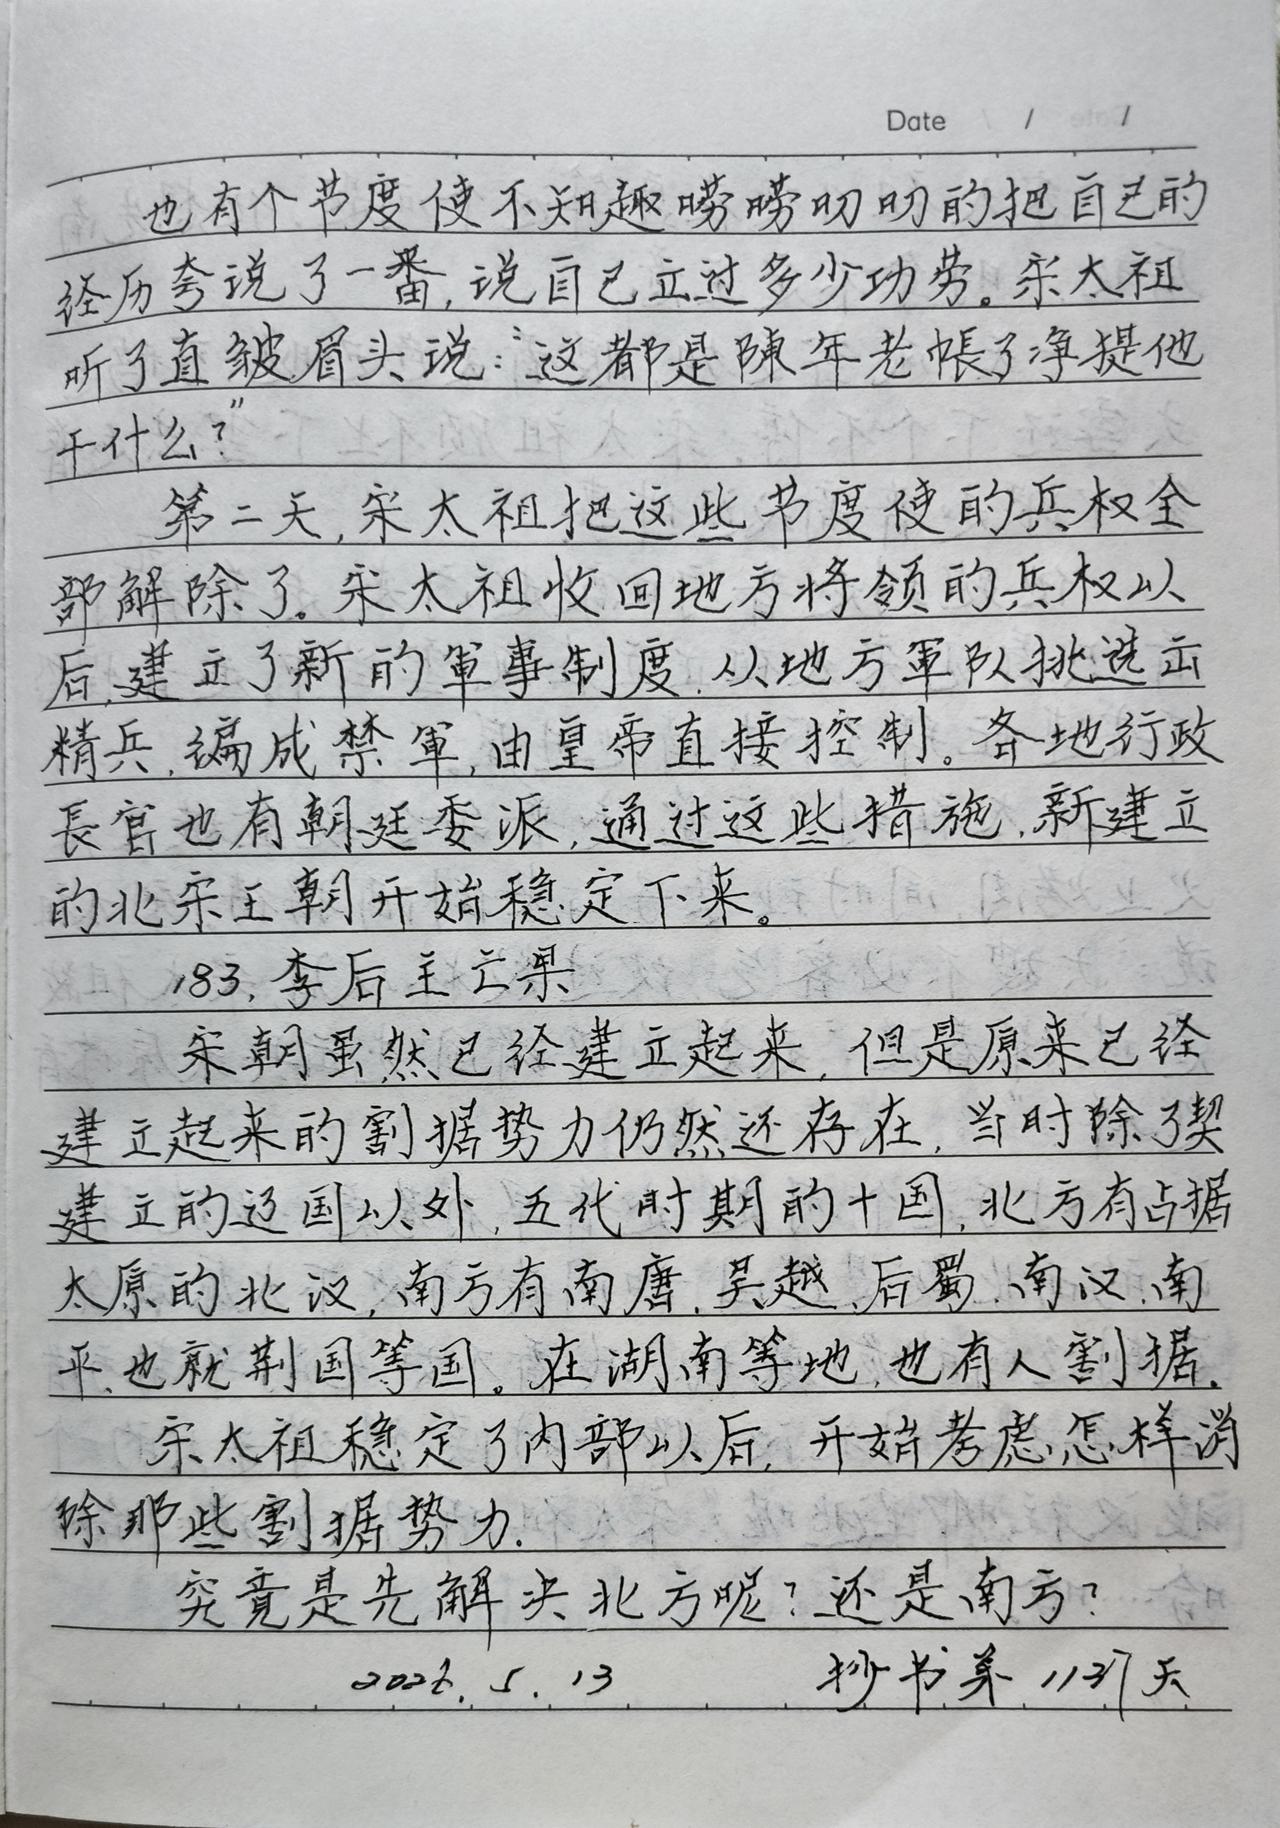 Date / /
也有个节度使不知趣唠唠叨叨的把自己的
经历夸说了一番,说自己立过多少功劳。宋太祖
听了直皱眉头说:“这都是陳年老帳了净提他
干什么?”
第二天,宋太祖把这些节度使的兵权全
部解除了。宋太祖收回地方将领的兵权以
后,建立了新的軍事制度,从地方軍队挑选出
精兵,编成禁軍,由皇帝直接控制。各地行政
長官也有朝廷委派,通过这些措施,新建立
的北宋王朝开始稳定下来。
183,李后主亡果
宋朝虽然已经建立起来,但是原来已经
建立起来的割据势力仍然还存在,当时除了契
建立的辽国以外,五代时期的十国,北方有占据
太原的北汉,南方有南唐、吴越、后蜀、南汉、南
平、也就荆国等国。在湖南等地,也有人割据.
宋太祖稳定了内部以后,开始考虑怎样消
除那些割据势力.
究竟是先解决北方呢?还是南方?
5.13 抄书第1137天